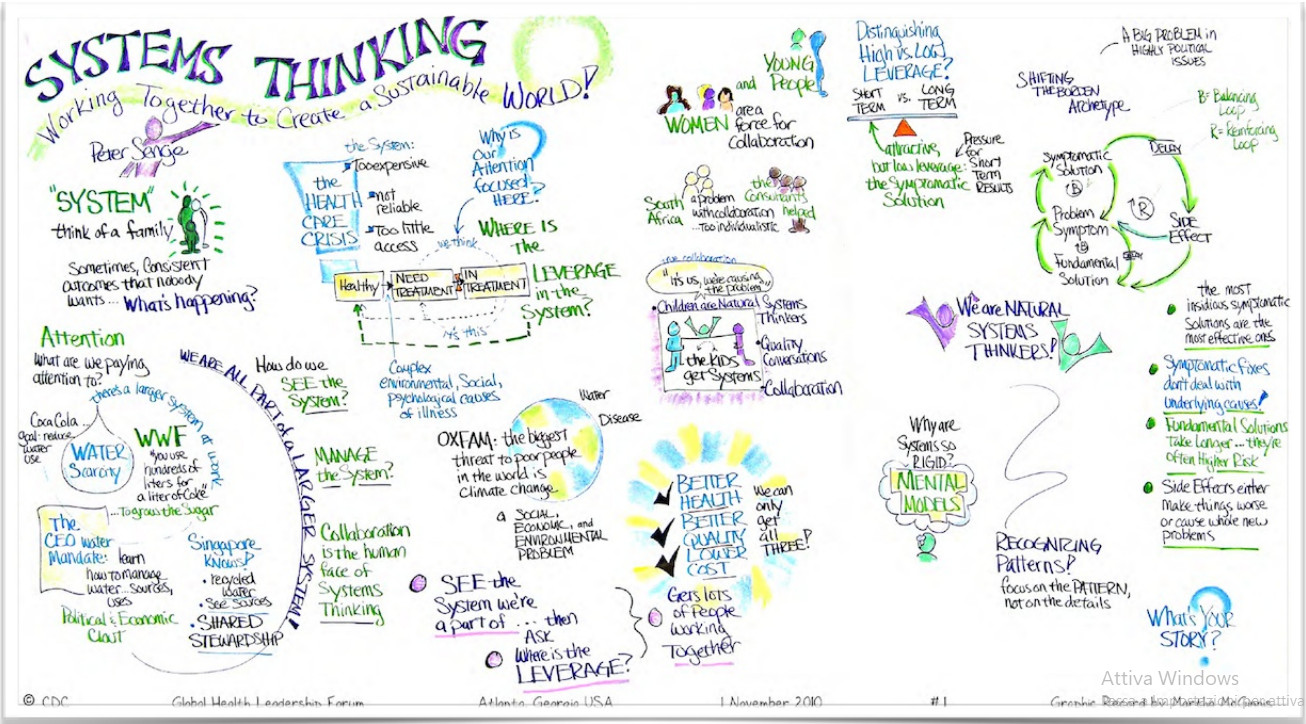 SYSTEMS THINKING
Working Together to Create a Sustainable WORLD!
Peter Senge
"SYSTEM"
think of a family
Sometimes, Consistent
outcomes that nobody
wants... What's happening?
Attention
What are we paying
attention to?
there's a larger system at work
CocaCola...
goal: reduce
water
use
WATER
Scarcity
WWF
"you use
hundreds of
liters for
a liter of Coke"
...To grow the Sugar
The
CEO water
Mandate: learn
how to manage
water...sources,
uses
Political & Economic
Clout
Singapore
KNOWS!
• recycled
water
• See Sources
• SHARED
STEWARDSHIP
WE ARE ALL PART of a LARGER SYSTEM!
the
HEALTH
CARE
CRISIS
the System:
Too expensive
not
reliable
Too little
access
Why is
Our
Attention
focused
HERE?
we think
WHERE IS
the
LEVERAGE
in the
System?
Healthy
NEED
TREATMENT
IN
TREATMENT
it's this
Complex
environmental, Social,
psychological causes
of illness
How do we
SEE the
System?
MANAGE
the System?
Collaboration
is the human
face of
Systems
Thinking
Water
Disease
OXFAM: the biggest
threat to poor people
in the world is
Climate change
a SOCIAL,
ECONOMIC, and
ENVIRONMENTAL
PROBLEM
SEE the
System we're
a part of ... then
ASK
Where is the
LEVERAGE?
Gets lots
of People
working
Together
YOUNG
People
and
WOMEN
are a
force for
Collaboration
South
Africa
a problem
with collaboration
...Too individualistic
the
Consultants
helped
true collaboration
"It's us, we're causing
the problem"
• Children are Natural Systems
Thinkers
the KIDS
get Systems
• Quality
Conversations
• Collaboration
BETTER
HEALTH
BETTER
QUALITY
LOWER
COST
We can
only
get
all
THREE!
Distinguishing
High vs. Low
LEVERAGE?
SHORT
TERM
vs.
LONG
TERM
attractive,
but low leverage:
the Symptomatic
Solution
Pressure
for
Short
Term
RESULTS
A BIG PROBLEM in
HIGHLY POLITICAL
ISSUES
SHIFTING
THE BURDEN
Archetype
B= Balancing
Loop
R= Reinforcing
Loop
Symptomatic
Solution
B
DELAY
R
Problem
Symptom
B
SIDE
EFFECT
Fundamental
Solution
We are NATURAL
SYSTEMS
THINKERS!
the most
insidious symptomatic
Solutions are the
most effective ones
Symptomatic fixes
don't deal with
underlying causes!
Fundamental Solutions
Take Longer... they're
often Higher Risk
Side Effects either
make things worse
or cause whole new
problems
Why are
Systems so
RIGID?
MENTAL
MODELS
RECOGNIZING
Patterns!
focus on the PATTERN,
not on the details
What's YOUR
STORY?
Attiva Windows
© CDC Global Health Leadership Forum Atlanta, Georgia USA 1 November 2010 #1 Graphic Record by Martha McGinnis